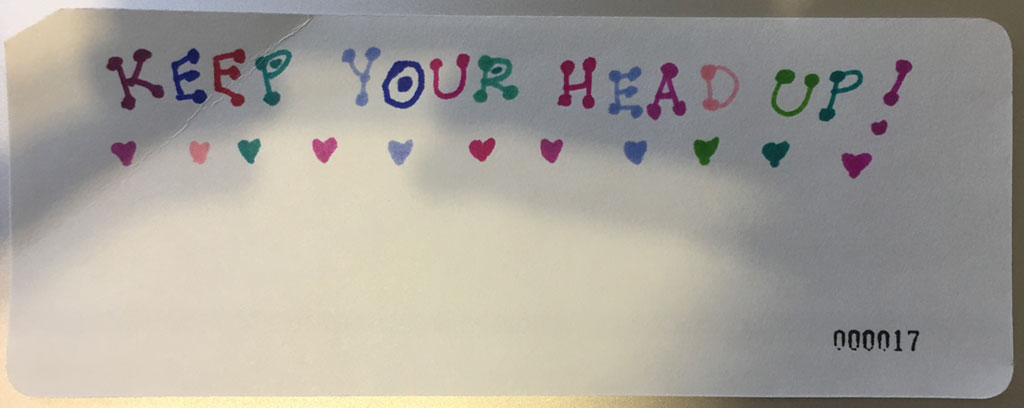 KEEP YOUR HEAD UP!
000017